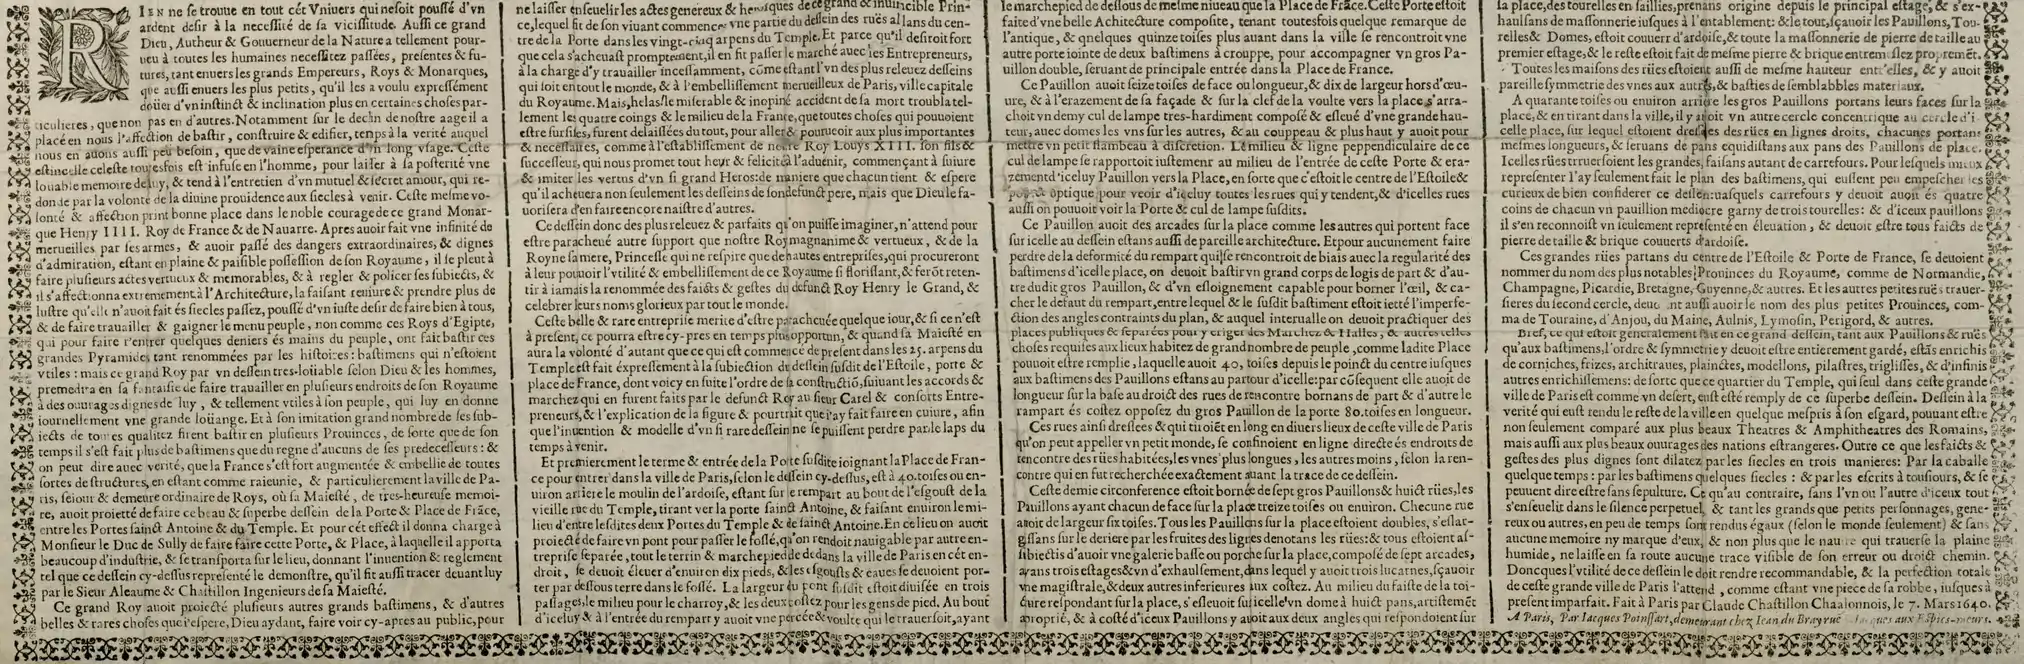 RIEN ne ſe trouue en tout cét Vniuers qui ne ſoit pouſſé d'vn
ardent deſir à la neceſſité de ſa viciſſitude. Auſſi ce grand
Dieu, Autheur & Gouuerneur de la Nature a tellement pour-
ueu à toutes les humaines neceſſitez paſſées, preſentes & fu-
tures, tant enuers les grands Empereurs, Roys & Monarques,
que auſſi enuers les plus petits, qu'il les a voulu expreſſément
doüer d'vn inſtinct & inclination plus en certaines choſes par-
ticulieres, que non pas en d'autres. Notamment ſur le declin de noſtre aage il a
placé en nous l'affection de baſtir, conſtruire & edifier, temps à la verité auquel
nous en auons auſſi peu beſoin, que de vaine eſperance d'vn long vſage. Ceſte
eſtincelle celeſte toutesfois eſt infuſe en l'homme, pour laiſſer à ſa poſterité vne
loüable memoire de luy, & tend à l'entretien d'vn mutuel & ſecret amour, qui re-
donde par la volonté de la diuine prouidence aux ſiecles à venir. Ceſte meſme vo-
lonté & affection print bonne place dans le noble courage de ce grand Monar-
que Henry IIII. Roy de France & de Nauarre. Apres auoir fait vne infinité de
merueilles par ſes armes, & auoir paſſé des dangers extraordinaires, & dignes
d'admiration, eſtant en plaine & paiſible poſſeſſion de ſon Royaume, il ſe pleut à
faire pluſieurs actes vertueux & memorables, & à regler & policer ſes ſubiects, &
il s'affectionna extremement à l'Architecture, la faiſant reuiure & prendre plus de
luſtre qu'elle n'auoit fait és ſiecles paſſez, pouſſé d'vn iuſte deſir de faire bien à tous,
& de faire trauailler & gaigner le menu peuple, non comme ces Roys d'Egipte,
qui pour faire r'entrer quelques deniers és mains du peuple, ont fait baſtir ces
grandes Pyramides tant renommées par les hiſtoires: baſtimens qui n'eſtoient
vtiles: mais ce grand Roy par vn deſſein tres-loüable ſelon Dieu & les hommes,
premedita en ſa fantaiſie de faire trauailler en pluſieurs endroits de ſon Royaume
à des ouurages dignes de luy, & tellement vtiles à ſon peuple, qui luy en donne
iournellement vne grande loüange. Et à ſon imitation grand nombre de ſes ſub-
iects de toutes qualitez firent baſtir en pluſieurs Prouinces, de ſorte que de ſon
temps il s'eſt fait plus de baſtimens que du regne d'aucuns de ſes predeceſſeurs: &
on peut dire auec verité, que la France s'eſt fort augmentée & embellie de toutes
ſortes de ſtructures, en eſtant comme raieunie, & particulierement la ville de Pa-
ris, ſeiour & demeure ordinaire de Roys, où ſa Maieſté, de tres-heureuſe memoi-
re, auoit proietté de faire ce beau & ſuperbe deſſein de la Porte & Place de Frāce,
entre les Portes ſainct Antoine & du Temple. Et pour cét effect il donna charge à
Monſieur le Duc de Sully de faire faire cette Porte, & Place, à laquelle il apporta
beaucoup d'induſtrie, & ſe tranſporta ſur le lieu, donnant l'inuention & reglement
tel que ce deſſein cy-deſſus repreſenté le demonſtre, qu'il fit auſſi tracer deuant luy
par le Sieur Aleaume & Chaſtillon Ingenieurs de ſa Maieſté.
Ce grand Roy auoit proiecté pluſieurs autres grands baſtimens, & d'autres
belles & rares choſes que i'eſpere, Dieu aydant, faire voir cy-apres au public, pour
ne laiſſer enſeuelir les actes genereux & heroïques de ce grand & inuincible Prin-
ce, lequel fit de ſon viuant commencer vne partie du deſſein des ruës allans du cen-
tre de la Porte dans les vingt-cinq arpens du Temple. Et parce qu'il deſiroit fort
que cela s'acheuaſt promptement, il en fit paſſer le marché auec les Entrepreneurs,
à la charge d'y trauailler inceſſamment, cōme eſtant l'vn des plus releuez deſſeins
qui ſoit en tout le monde, & à l'embelliſſement merueilleux de Paris, ville capitale
du Royaume. Mais, helas! le miſerable & inopiné accident de ſa mort troubla tel-
lement les quatre coings & le milieu de la France, que toutes choſes qui pouuoient
eſtre ſurſiſes, furent delaiſſées du tout, pour aller & pourueoir aux plus importantes
& neceſſaires, comme à l'eſtabliſſement de noſtre Roy Louys XIII. ſon fils &
ſucceſſeur, qui nous promet tout heur & felicité à l'aduenir, commençant à ſuiure
& imiter les vertus d'vn ſi grand Heros: de maniere que chacun tient & eſpere
qu'il acheuera non ſeulement les deſſeins de ſon defunct pere, mais que Dieu le fa-
uoriſera d'en faire encore naiſtre d'autres.
Ce deſſein donc des plus releuez & parfaits qu'on puiſſe imaginer, n'attend pour
eſtre paracheué autre ſupport que noſtre Roy magnanime & vertueux, & de la
Royne ſa mere, Princeſſe qui ne reſpire que de hautes entrepriſes, qui procureront
à leur pouuoir l'vtilité & embelliſſement de ce Royaume ſi floriſſant, & ferōt reten-
tir à iamais la renommée des faicts & geſtes du defunct Roy Henry le Grand, &
celebrer leurs noms glorieux par tout le monde.
Ceſte belle & rare entrepriſe merite d'eſtre paracheuée quelque iour, & ſi ce n'eſt
à preſent, ce pourra eſtre cy-pres en temps plus opportun, & quand ſa Maieſté en
aura la volonté d'autant que ce qui eſt commencé de preſent dans les 25. arpens du
Temple eſt fait expreſſement à la ſubiection du deſſein ſuſdit de l'Eſtoile, porte &
place de France, dont voicy en ſuite l'ordre de la conſtructiō, ſuiuant les accords &
marchez qui en furent faits par le defunct Roy au ſieur Carel & conſorts Entre-
preneurs, & l'explication de la figure & pourtrait que i'ay fait faire en cuiure, afin
que l'inuention & modelle d'vn ſi rare deſſein ne ſe puiſſent perdre par le laps du
temps à venir.
Et premierement le terme & entrée de la Porte ſuſdite ioignant la Place de Fran-
ce pour entrer dans la ville de Paris, ſelon le deſſein cy-deſſus, eſt à 40. toiſes ou en-
uiron arriere le moulin de l'ardoiſe, eſtant ſur le rempart au bout de l'eſgouſt de la
vieille ruë du Temple, tirant ver la porte ſainct Antoine, & faiſant enuiron le mi-
lieu d'entre leſdites deux Portes du Temple & de ſainct Antoine. En ce lieu on auoit
proiecté de faire vn pont pour paſſer le foſſé, qu'on rendoit nauigable par autre en-
trepriſe ſeparée, tout le terrin & marchepied de dedans la ville de Paris en cét en-
droit, ſe deuoit éleuer d'enuiron dix pieds, & les eſgouſts & eaues ſe deuoient por-
ter par deſſous terre dans le foſſé. La largeur du pont ſuſdit eſtoit diuiſée en trois
paſſages, le milieu pour le charroy, & les deux coſtez pour les gens de pied. Au bout
d'iceluy & à l'entrée du rempart y auoit vne percée & voulte qui le trauerſoit, ayant
le marchepied de deſſous de meſme niueau que la Place de Frāce. Ceſte Porte eſtoit
faite d'vne belle Achitecture compoſite, tenant toutesfois quelque remarque de
l'antique, & quelques quinze toiſes plus auant dans la ville ſe rencontroit vne
autre porte iointe de deux baſtimens à crouppe, pour accompagner vn gros Pa-
uillon double, ſeruant de principale entrée dans la Place de France.
Ce Pauillon auoit ſeize toiſes de face ou longueur, & dix de largeur hors d'œu-
ure, & à l'erazement de ſa façade & ſur la clef de la voulte vers la place s'arra-
choit vn demy cul de lampe tres-hardiment compoſé & eſleué d'vne grande hau-
teur, auec domes les vns ſur les autres, & au couppeau & plus haut y auoit pour
mettre vn petit flambeau à diſcretion. Le milieu & ligne peppendiculaire de ce
cul de lampe ſe rapportoit iuſtement au milieu de l'entrée de ceſte Porte & era-
zement d'iceluy Pauillon vers la Place, en ſorte que c'eſtoit le centre de l'Eſtoile &
optique pour veoir d'iceluy toutes les rues qui y tendent, & d'icelles rues
auſſi on pouuoit voir la Porte & cul de lampe ſuſdits.
Ce Pauillon auoit des arcades ſur la place comme les autres qui portent face
ſur icelle au deſſein eſtans auſſi de pareille architecture. Et pour aucunement faire
perdre de la deformité du rempart qui ſe rencontroit de biais auec la regularité des
baſtimens d'icelle place, on deuoit baſtir vn grand corps de logis de part & d'au-
tre dudit gros Pauillon, & d'vn eſloignement capable pour borner l'œil, & ca-
cher le defaut du rempart, entre lequel & le ſuſdit baſtiment eſtoit ietté l'imperfe-
ction des angles contraints du plan, & auquel interualle on deuoit practiquer des
places publiques & ſeparées pour y eriger des Marchez & Halles, & autres telles
choſes requiſes aux lieux habitez de grand nombre de peuple, comme ladite Place
pouuoit eſtre remplie, laquelle auoit 40, toiſes depuis le poinct du centre iuſques
aux baſtimens des Pauillons eſtans au partour d'icelle: par cōſequent elle auoit de
longueur ſur la baſe au droict des rues de rencontre bornans de part & d'autre le
rampart és coſtez oppoſez du gros Pauillon de la porte 80. toiſes en longueur.
Ces rues ainſi dreſſees & qui tiroiēt en long en diuers lieux de ceſte ville de Paris
qu'on peut appeller vn petit monde, ſe confinoient en ligne directe és endroits de
rencontre des rües habitées, les vnes plus longues, les autres moins, ſelon la ren-
contre qui en fut recherchée exactement auant la trace de ce deſſein.
Ceſte demie circonference eſtoit bornée de ſept gros Pauillons & huict rües, les
Pauillons ayant chacun de face ſur la place treize toiſes ou enuiron. Chacune rue
auoit de largeur ſix toiſes. Tous les Pauillons ſur la place eſtoient doubles, s'eſlar-
giſſans ſur le deriere par les fruites des lignes denotans les rües: & tous eſtoient aſ-
ſubiectis d'auoir vne galerie baſſe ou porche ſur la place, compoſé de ſept arcades,
ayans trois eſtages & vn d'exhauſſement, dans lequel y auoit trois lucarnes, ſçauoir
vne magiſtrale, & deux autres inferieures aux coſtez. Au milieu du faiſte de la toi-
cture reſpondant ſur la place, s'eſleuoit ſur icelle vn dome à huict pans, artiſtemēt
aproprié, & à coſté d'iceux Pauillons y auoit aux deux angles qui reſpondoient ſur
la place, des tourelles en ſaillies, prenans origine depuis le principal eſtage, & s'ex-
hauſſans de maſſonnerie iuſques à l'entablement: & le tout, ſçauoir les Pauillons, Tou-
relles & Domes, eſtoit couuert d'ardoiſe, & toute la maſſonnerie de pierre de taille au
premier eſtage, & le reſte eſtoit fait de meſme pierre & brique entremeſlez propremēt.
Toutes les maiſons des rües eſtoient auſſi de meſme hauteur entr'elles, & y auoit
pareille ſymmetrie des vnes aux autres, & baſties de ſemblabbles materiaux.
A quarante toiſes ou enuiron arriere les gros Pauillons portans leurs faces ſur la
place, & en tirant dans la ville, il y auoit vn autre cercle concentrique au cercle d'i-
celle place, ſur lequel eſtoient dreſſées des rües en lignes droits, chacunes portans
meſmes longueurs, & ſeruans de pans equidiſtans aux pans des Pauillons de place.
Icelles rües truerſoient les grandes, faiſans autant de carrefours. Pour leſquels mieux
repreſenter l'ay ſeulement fait le plan des baſtimens, qui euſſent peu empeſcher les
curieux de bien conſiderer ce deſſein: auſquels carrefours y deuoit auoir és quatre
coins de chacun vn pauillion mediocre garny de trois tourelles: & d'iceux pauillons
il s'en reconnoiſt vn ſeulement repreſenté en éleuation, & deuoit eſtre tous faicts de
pierre de taille & brique couuerts d'ardoiſe.
Ces grandes rües partans du centre de l'Eſtoile & Porte de France, ſe deuoient
nommer du nom des plus notables Prouinces du Royaume, comme de Normandie,
Champagne, Picardie, Bretagne, Guyenne, & autres. Et les autres petites ruës trauer-
ſieres du ſecond cercle, deuoient auſſi auoir le nom des plus petites Prouinces, com-
ma de Touraine, d'Anjou, du Maine, Aulnis, Lymoſin, Perigord, & autres.
Bref, ce qui eſtoit generalement fait en ce grand deſſein, tant aux Pauillons & ruës
qu'aux baſtimens, l'ordre & ſymmetrie y deuoit eſtre entierement gardé, eſtās enrichis
de corniches, frizes, architraues, plainctes, modellons, pilaſtres, trigliſſes, & d'infinis
autres enrichiſſemens: de ſorte que ce quartier du Temple, qui ſeul dans ceſte grande
ville de Paris eſt comme vn deſert, euſt eſté remply de ce ſuperbe deſſein. Deſſein à la
verité qui euſt rendu le reſte de la ville en quelque meſpris à ſon eſgard, pouuant eſtre
non ſeulement comparé aux plus beaux Theatres & Amphitheatres des Romains,
mais auſſi aux plus beaux ouurages des nations eſtrangeres. Outre ce que les faicts &
geſtes des plus dignes ſont dilatez par les ſiecles en trois manieres: Par la caballe
quelque temps: par les baſtimens quelques ſiecles: & par les eſcrits à touſiours, & ſe
peuuent dire eſtre ſans ſepulture. Ce qu'au contraire, ſans l'vn ou l'autre d'iceux tout
s'enſeuelit dans le ſilence perpetuel, & tant les grands que petits perſonnages, gene-
reux ou autres, en peu de temps ſont rendus égaux (ſelon le monde ſeulement) & ſans
aucune memoire ny marque d'eux, & non plus que le nauire qui trauerſe la plaine
humide, ne laiſſe en ſa route aucune trace viſible de ſon erreur ou droict chemin.
Doncques l'vtilité de ce deſſein le doit rendre recommandable, & la perfection totale
de ceſte grande ville de Paris l'attend, comme eſtant vne piece de ſa robbe, iuſques à
preſent imparfait. Fait à Paris par Claude Chaſtillon Chaalonnois, le 7. Mars 1640.
A Paris, Par Iacques Poinſſart, demeurant chez Iean du Bray ruë Iacques aux Eſpics-meurs.